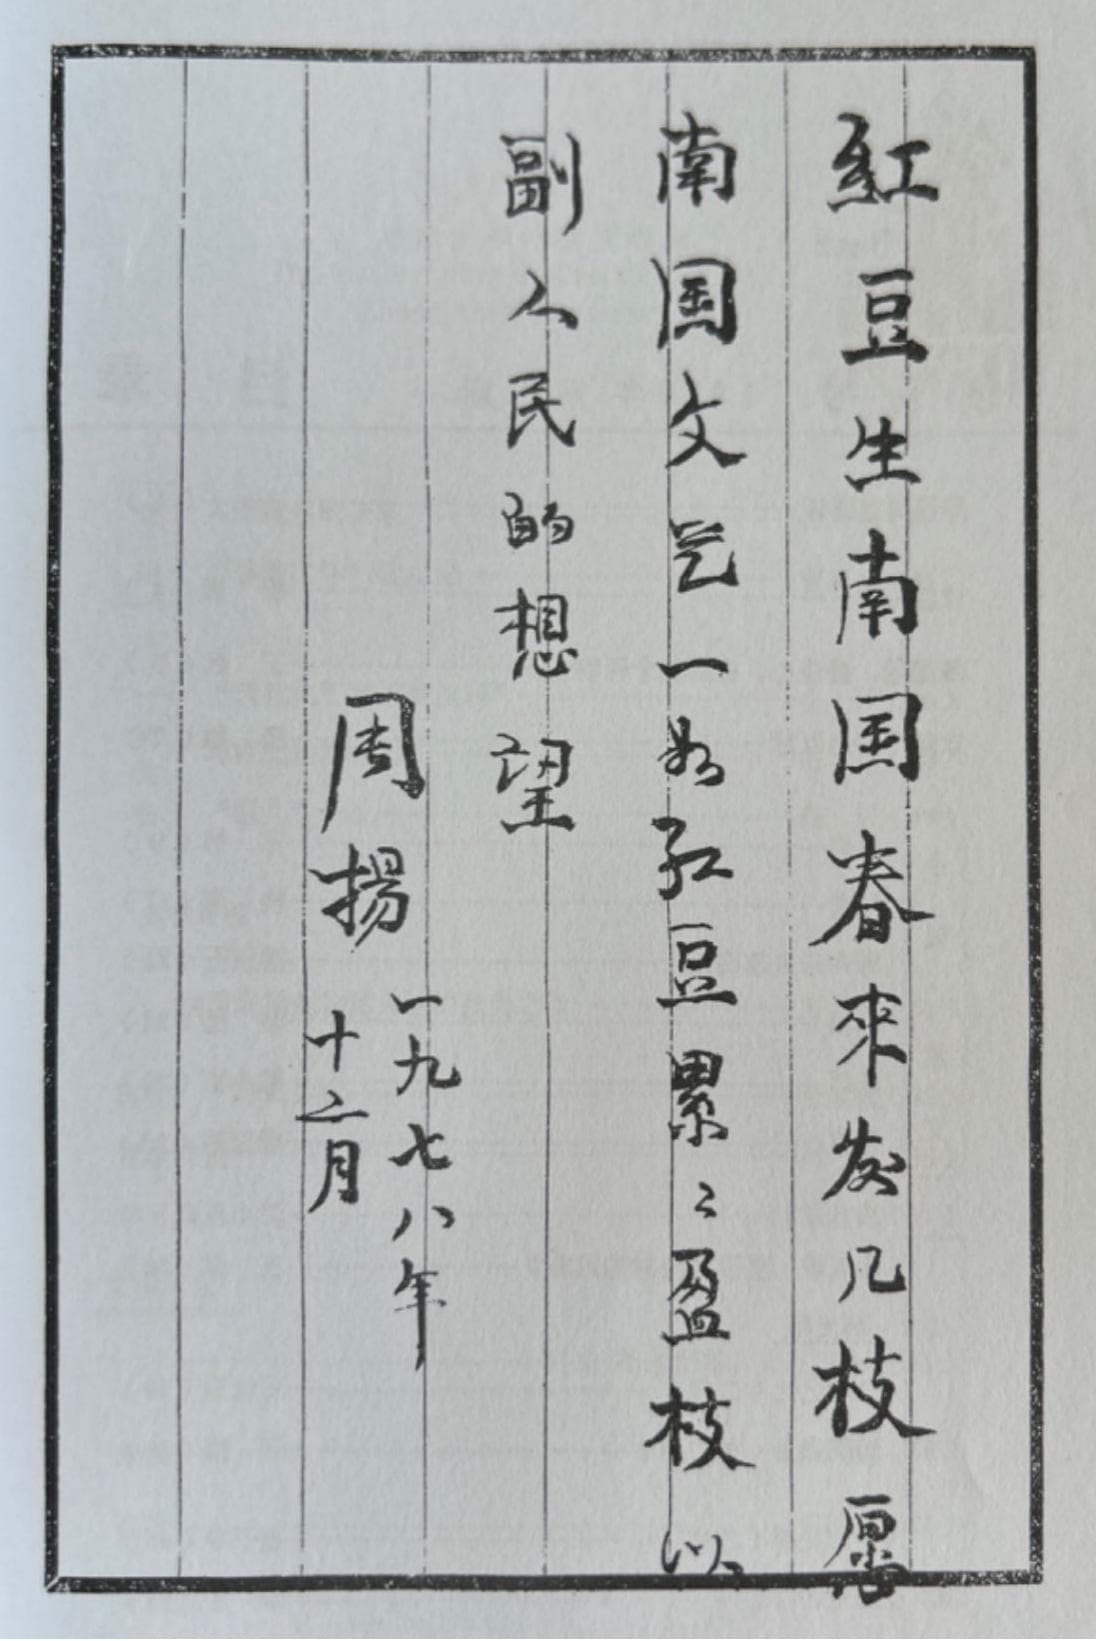 紅豆生南国春來发几枝愿
南国文艺一如红豆累々盈枝以
副人民的想望
周揚
一九七八年
十二月